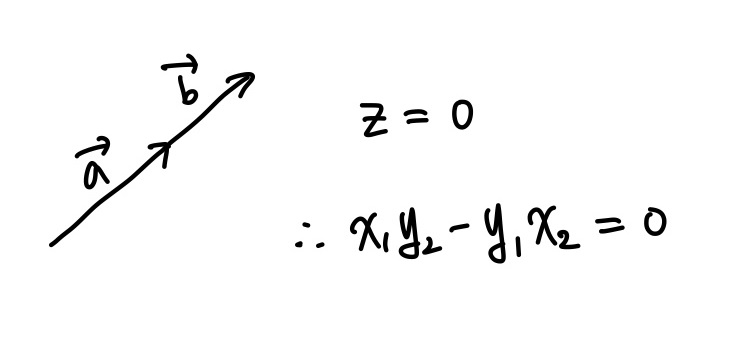 b⃗
a⃗
z = 0
∴ x₁y₂ - y₁x₂ = 0